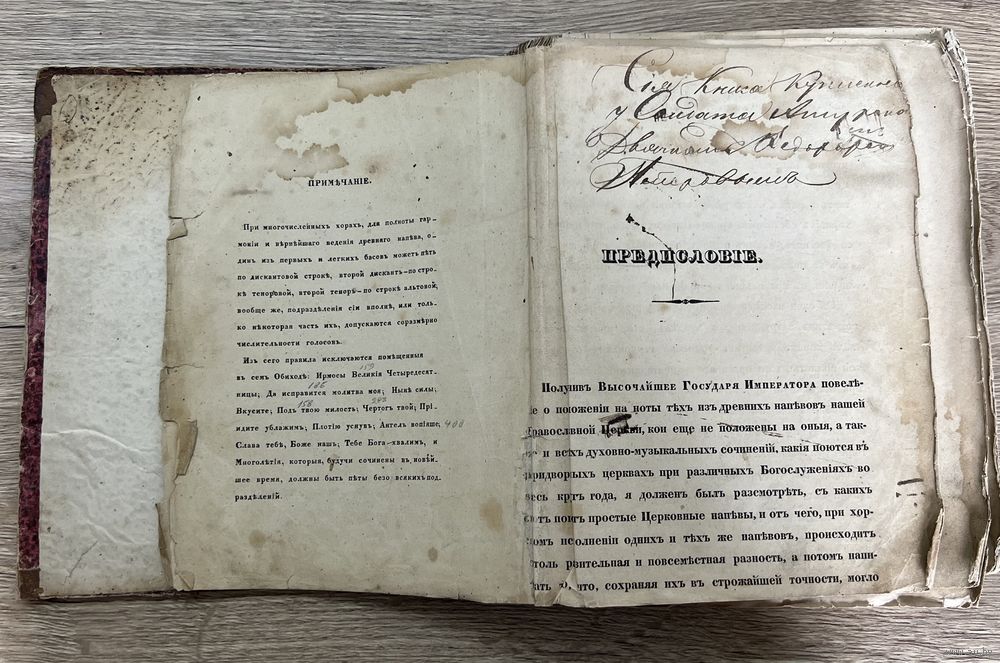 ПРИМѢЧАНІЕ.
При многочисленныхъ хорахъ, для полноты гар-
моніи и вѣрнѣйшаго веденія древняго напѣва, о-
динъ изъ первыхъ и легкихъ басовъ можетъ пѣть
по дискантовой строкѣ, второй дискантъ-по стро-
кѣ теноровой, второй теноръ-по строкѣ альтовой,
вообще же, подраздѣленія сіи вполнѣ, или толь-
ко нѣкоторая часть ихъ, допускаются соразмѣрно
числительности голосовъ.
Изъ сего правила исключаются помѣщенныя
159
въ семъ Обиходѣ: Ирмосы Великія Четыредесят-
186
ницы; Да исправится молитва моя; Нынѣ силы;
158 283
Вкусите; Подъ твою милость; Чертогъ твой; Прі-
идите ублажимъ; Плотію уснувъ; Ангелъ вопіяше; 400
Слава тебѣ, Боже нашъ; Тебе Бога хвалимъ, и
Многолѣтія, которыя, будучи сочинены въ новѣй-
шее время, должны быть пѣты безо всякихъ под-
раздѣленій.
Сія Книга Купленна
у Солдата
Предисловіе.
Получивъ Высочайшее Государя Императора повелѣ-
о положеніи на ноты тѣхъ изъ древнихъ напѣвовъ нашей
Православной Церкви, кои еще не положены на оныя, а так-
и всѣхъ духовно-музыкальныхъ сочиненій, какія поются въ
придворныхъ церквахъ при различныхъ Богослуженіяхъ во
весь кругъ года, я долженъ былъ разсмотрѣть, съ какихъ
нотъ поютъ простые Церковные напѣвы, и отъ чего, при хор-
номъ исполненіи однихъ и тѣхъ же напѣвовъ, происходитъ
столь разительная и повсемѣстная разность, а потомъ напи-
что, сохраняя ихъ въ строжайшей точности, могло